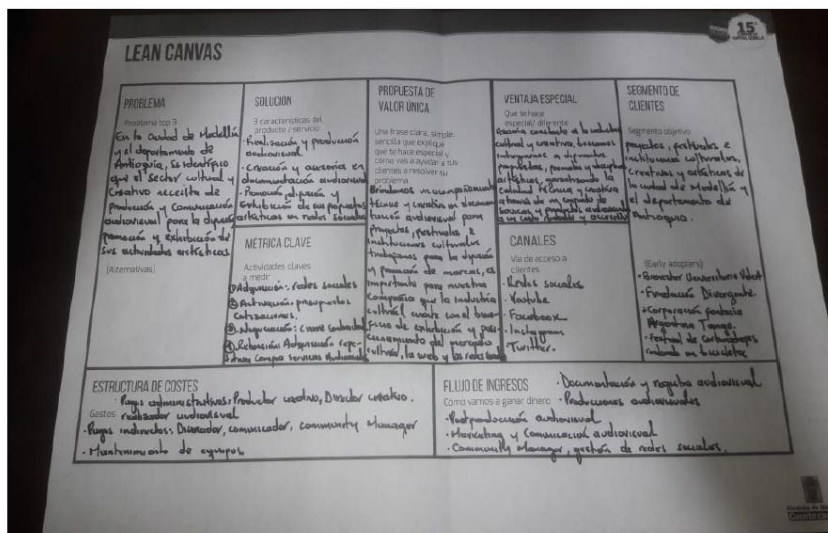 15
LEAN CANVAS
PROBLEMA
Problema top 3
En la ciudad de Medellín
y el departamento de
Antioquia, se identifico
que el sector cultural y
creativo necesita de
producción y comunicación
audiovisual para la difusión
promoción y exhibición de
sus actividades artísticas
(Alternativas)
SOLUCIÓN
3 características del
producto / servicio
Realización y producción
audiovisual
- Creación y asesoria en
documentación audiovisual
- Promoción, difusión y
Exhibición de sus propuestas
artísticas en redes sociales
MÉTRICA CLAVE
Actividades claves
a medir
Adquisición: redes sociales
Activación: presupuestos
Cotizaciones.
Retención: Adquisición repe-
compra servicios
PROPUESTA DE
VALOR ÚNICA
Una frase clara, simple,
sencilla que explique
qué te hace especial y
cómo vas a ayudar a tus
clientes a resolver su
problema
Brindamos un acompañamiento
técnico y creativo en documen-
tación audiovisual para
proyectos, festivales e
instituciones culturales
trabajamos para la difusión
y promoción de marcas, es
importante para nuestra
compañía que la industria
cultural cuente con el buen
cultural, la web y las redes
VENTAJA ESPECIAL
Que te hace
especial/ diferente
cultural y creativa, buscamos
artísticas, garantizando la
calidad técnica y creativa
a través de un
servicios y productos
CANALES
Vía de acceso a
clientes
- Redes sociales
- Youtube
- Facebook
- Instagram
- Twitter.
SEGMENTO DE
CLIENTES
Segmento objetivo
proyectos, festivales e
instituciones culturales,
creativas y artísticas de
la ciudad de Medellín y
el departamento de
Antioquia.
(Early adopters)
- Bienestar Universitario
- Fundación Divergente.
Corporación
Tango.
- Festival de
ESTRUCTURA DE COSTES
- Pagos administrativos: Productor creativo, Director creativo.
Gastos realizador audiovisual
- Pagos indirectos: Diseñador, comunicador, community Manager
- Mantenimiento de equipos
FLUJO DE INGRESOS
- Documentación y registro audiovisual
Cómo vamos a ganar dinero
- Producciones audiovisuales
- Postproducción audiovisual
- Marketing y Comunicación audiovisual
- Community Manager, gestión de redes sociales.